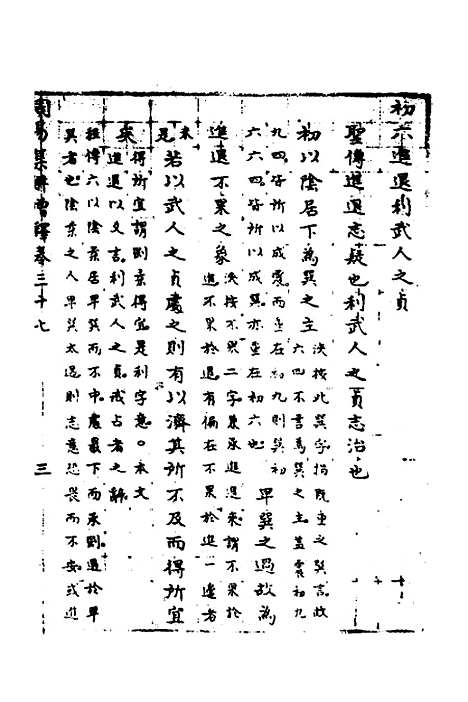 初六進退利武人之貞
聖傳進退志疑也利武人之貞志治也
初以陰居下為巽之主
決按此巽字指既重之巽言故
六四不言為巽之主蓋震初九
九四皆所以成震而重在初九則巽初
六六四皆所以成巽亦重在初六也
卑巽之過故為
進退不果之象
決按不果二字兼承進退來謂不果於
進不果於退有偏在不果於進一邊者
未
是
若以武人之貞處之則有以濟其所不及而得所宜
矣
得所宜謂剛柔得宜是利字意。本文
進退以爻言利武人之貞戒占者之辭
程傳六以陰柔居卑巽而不中處最下而承剛過於卑
巽者也陰柔之人卑巽太過則志意恐畏而不安或進
周易集解 卷三十七
三